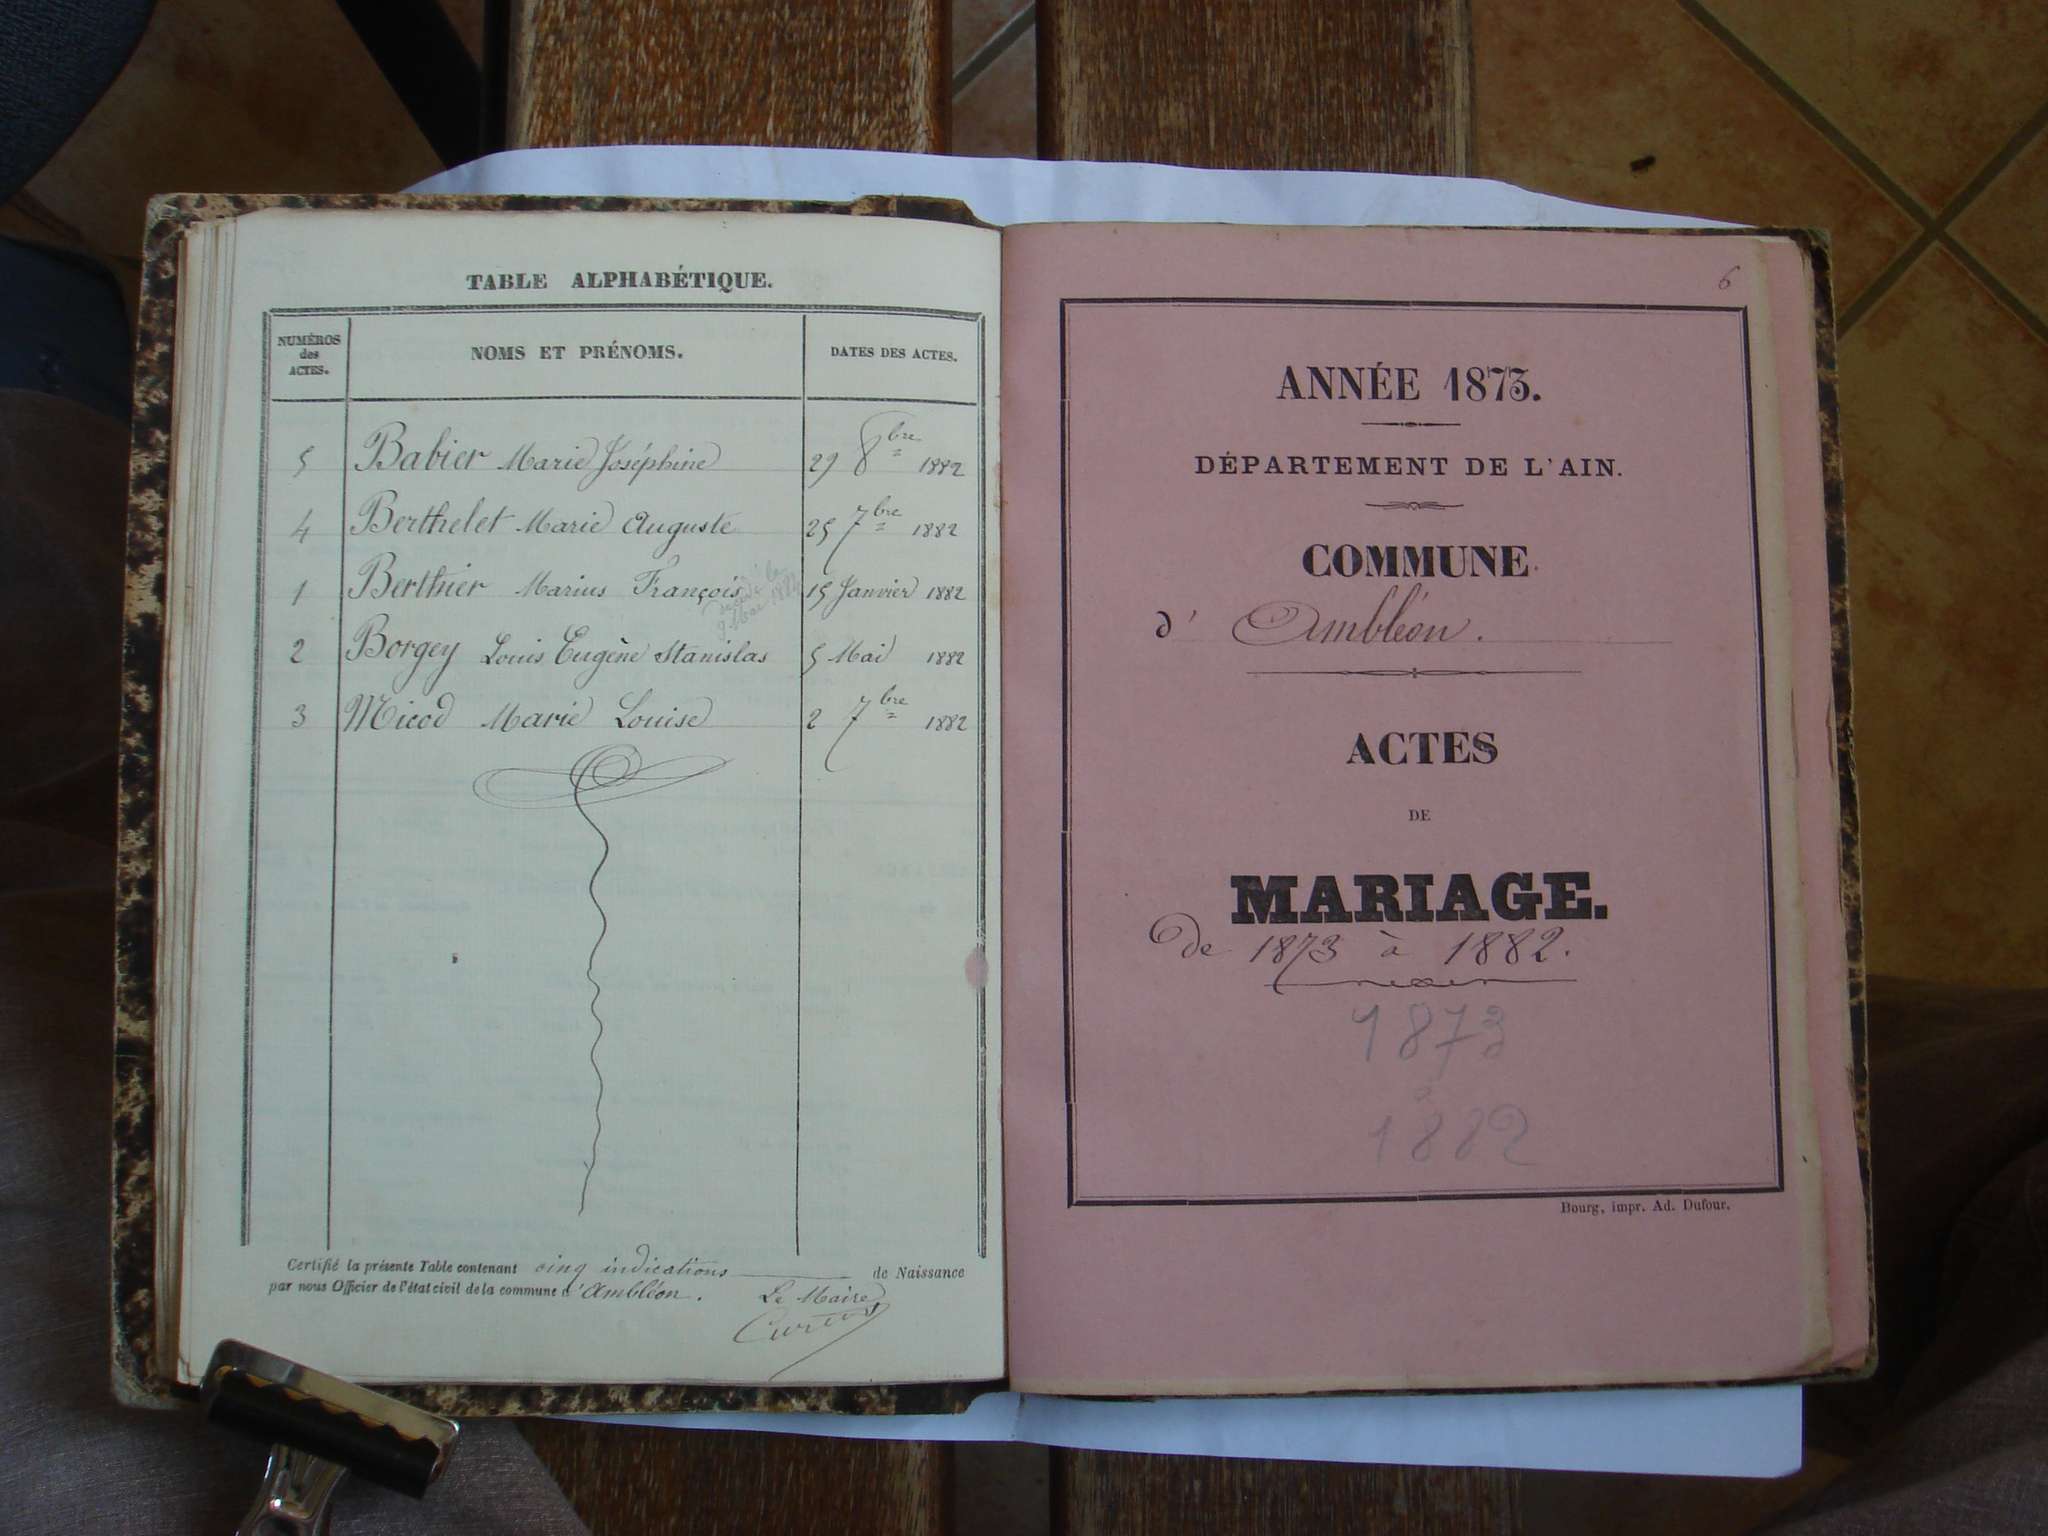 TABLE ALPHABÉTIQUE.
NUMÉROS des ACTES.
NOMS ET PRÉNOMS.
DATES DES ACTES.
5 Babier Marie Joséphine 29 8bre 1882
4 Berthelet Marie Auguste 25 7bre 1882
1 Berthier Marius François 15 Janvier 1882
décédé le
9 Mai 1882
2 Borgey Louis Eugène Stanislas 5 Mai 1882
3 Micod Marie Louise 2 7bre 1882
Certifié la présente Table contenant cinq indications de Naissance
par nous Officier de l'état civil de la commune d'Ambléon. Le Maire
6
ANNÉE 1873.
DÉPARTEMENT DE L'AIN.
COMMUNE
d' Ambléon.
ACTES
DE
MARIAGE.
De 1873 à 1882.
1873
à
1882
Bourg, impr. Ad. Dufour.